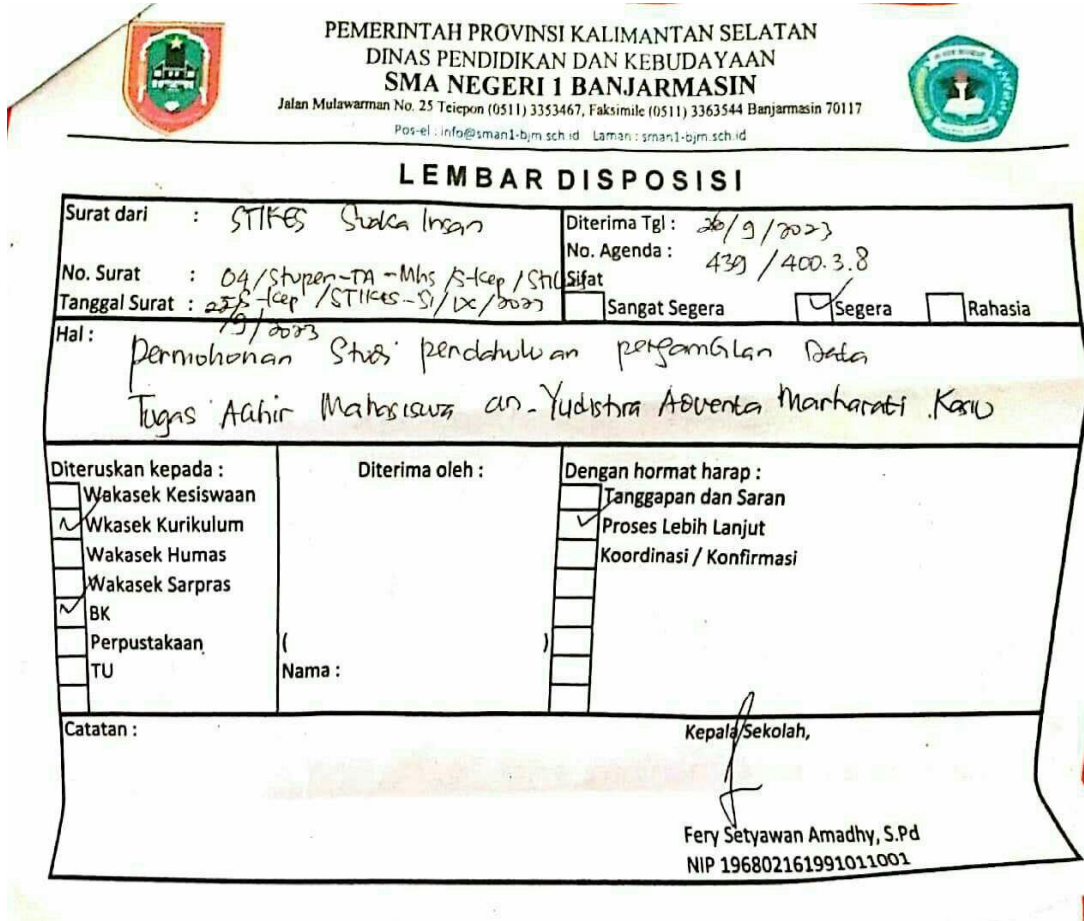 PEMERINTAH PROVINSI KALIMANTAN SELATAN
DINAS PENDIDIKAN DAN KEBUDAYAAN
SMA NEGERI 1 BANJARMASIN
Jalan Mulawarman No. 25 Telepon (0511) 3353467, Faksimile (0511) 3363544 Banjarmasin 70117
Pos-el : info@sman1-bjm.sch.id Laman : sman1-bjm.sch.id
LEMBAR DISPOSISI
Surat dari : STIKES Suaka Insan
Diterima Tgl : 26/9/2023
No. Agenda : 439 / 400.3.8
No. Surat : 04/Stupen-TA-Mhs/S-Kep/
S-Kep/STIKES-SI/IX/2023
Tanggal Surat : 25/9/2023
Sifat
Sangat Segera Segera Rahasia
Hal : Permohonan Studi pendahuluan pengambilan Data
Tugas Akhir Mahasiswa an. Yudistira Adventa Marharati
Diteruskan kepada :
Wakasek Kesiswaan
Wkasek Kurikulum
Wakasek Humas
Wakasek Sarpras
BK
Perpustakaan
TU
Diterima oleh :
( )
Nama :
Dengan hormat harap :
Tanggapan dan Saran
Proses Lebih Lanjut
Koordinasi / Konfirmasi
Catatan :
Kepala Sekolah,
Fery Setyawan Amadhy, S.Pd
NIP 196802161991011001